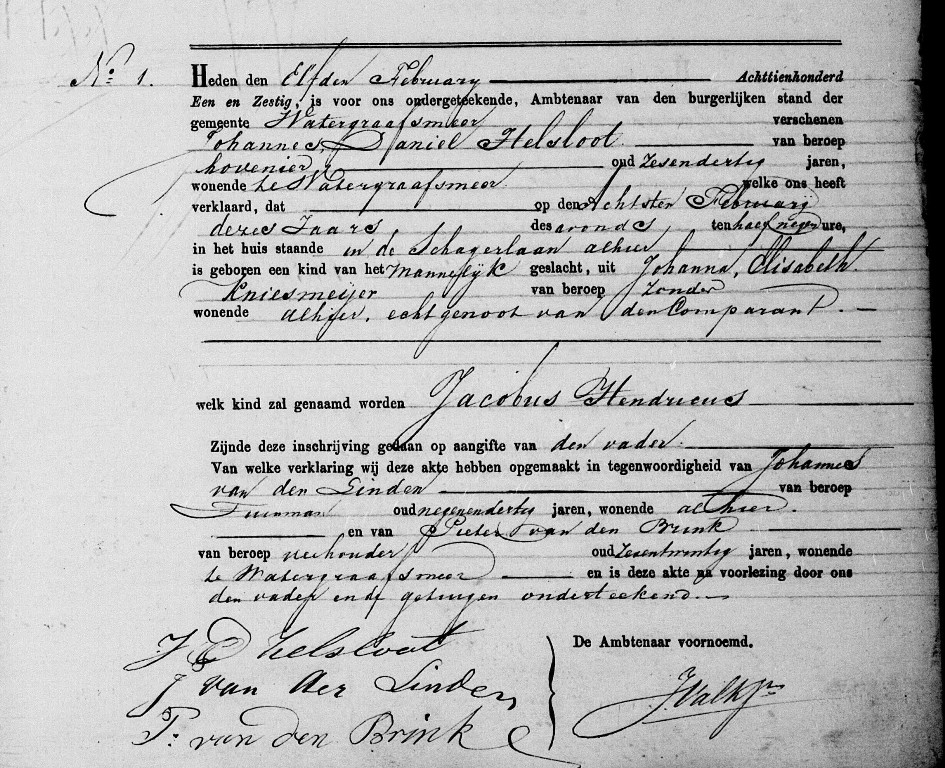 No. 1. Heden den Elfden February Achttienhonderd
Een en Zestig, is voor ons ondergeteekende, Ambtenaar van den burgerlijken stand der
gemeente Watergraafsmeer verschenen
Johannes, Daniel Helsloot van beroep
hovenier, oud Zesendertig jaren,
wonende te Watergraafsmeer welke ons heeft
verklaard, dat op den Achtsten February
dezes Jaars des avonds ten half negen ure,
in het huis staande in de Schagerlaan alhier
is geboren een kind van het Mannelyk geslacht, uit Johanna, Elisabeth
Kniesmeijer van beroep Zonder
wonende alhier, echtgenoot van den Comparant. —
welk kind zal genaamd worden Jacobus Hendricus
Zijnde deze inschrijving gedaan op aangifte van den vader.
Van welke verklaring wij deze akte hebben opgemaakt in tegenwoordigheid van Johannes
van den Linden van beroep
Tuinman oud negenendertig jaren, wonende alhier.
en van Pieter van den Brink
van beroep veehouder oud Zesentwintig jaren, wonende
te Watergraafsmeer en is deze akte na voorlezing door ons
den vader en de getuigen onderteekend. —
J D Helsloot
De Ambtenaar voornoemd.
J van der Linden
J Valk Jr
P. van den Brink